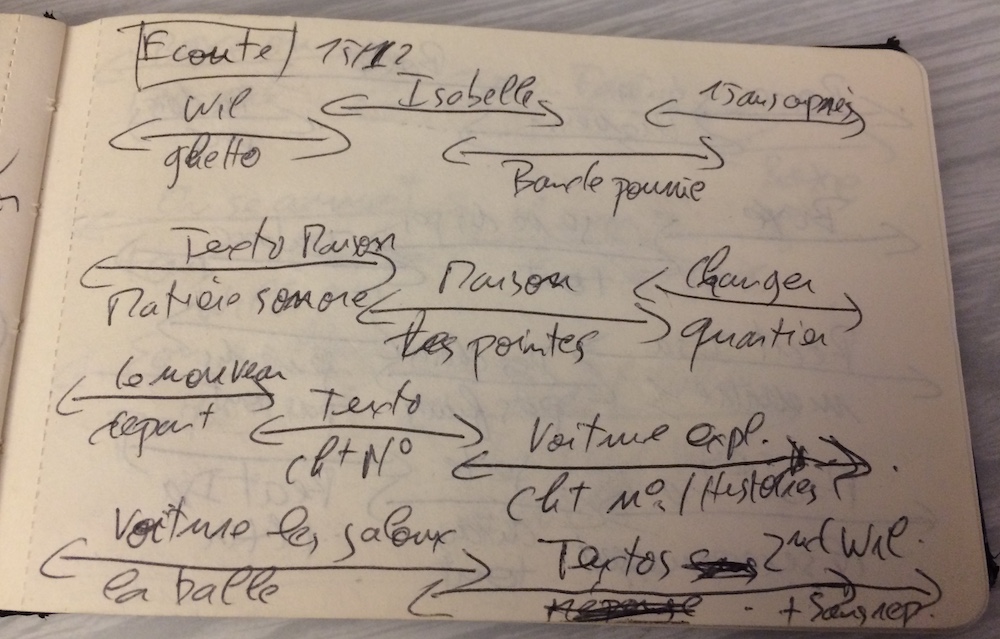 Ecoute 15/12
Wil Isabelle 15 ans après
ghetto Bande pourrie
Texto Maison
Matière sonore Maison Changer
les pointes quartier
le nouveau
départ Texto
cht N° Voiture expl.
cht n° / Histoires
Voiture les jaloux
la balle Textos 2nd Wil.
+ Sans rep.